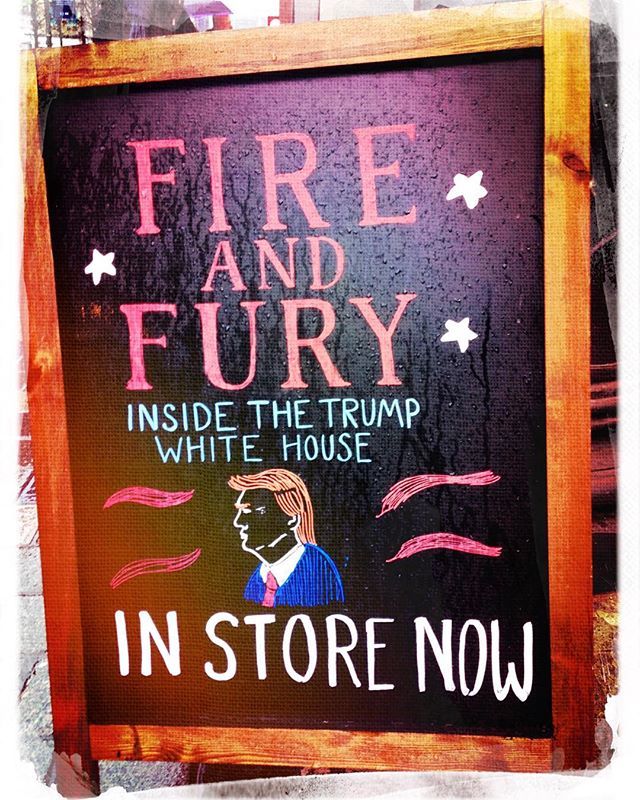 FIRE
AND
FURY
INSIDE THE TRUMP
WHITE HOUSE
IN STORE NOW